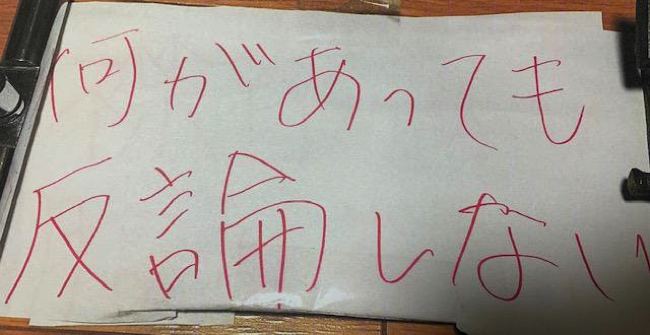 何があっても
反論しない